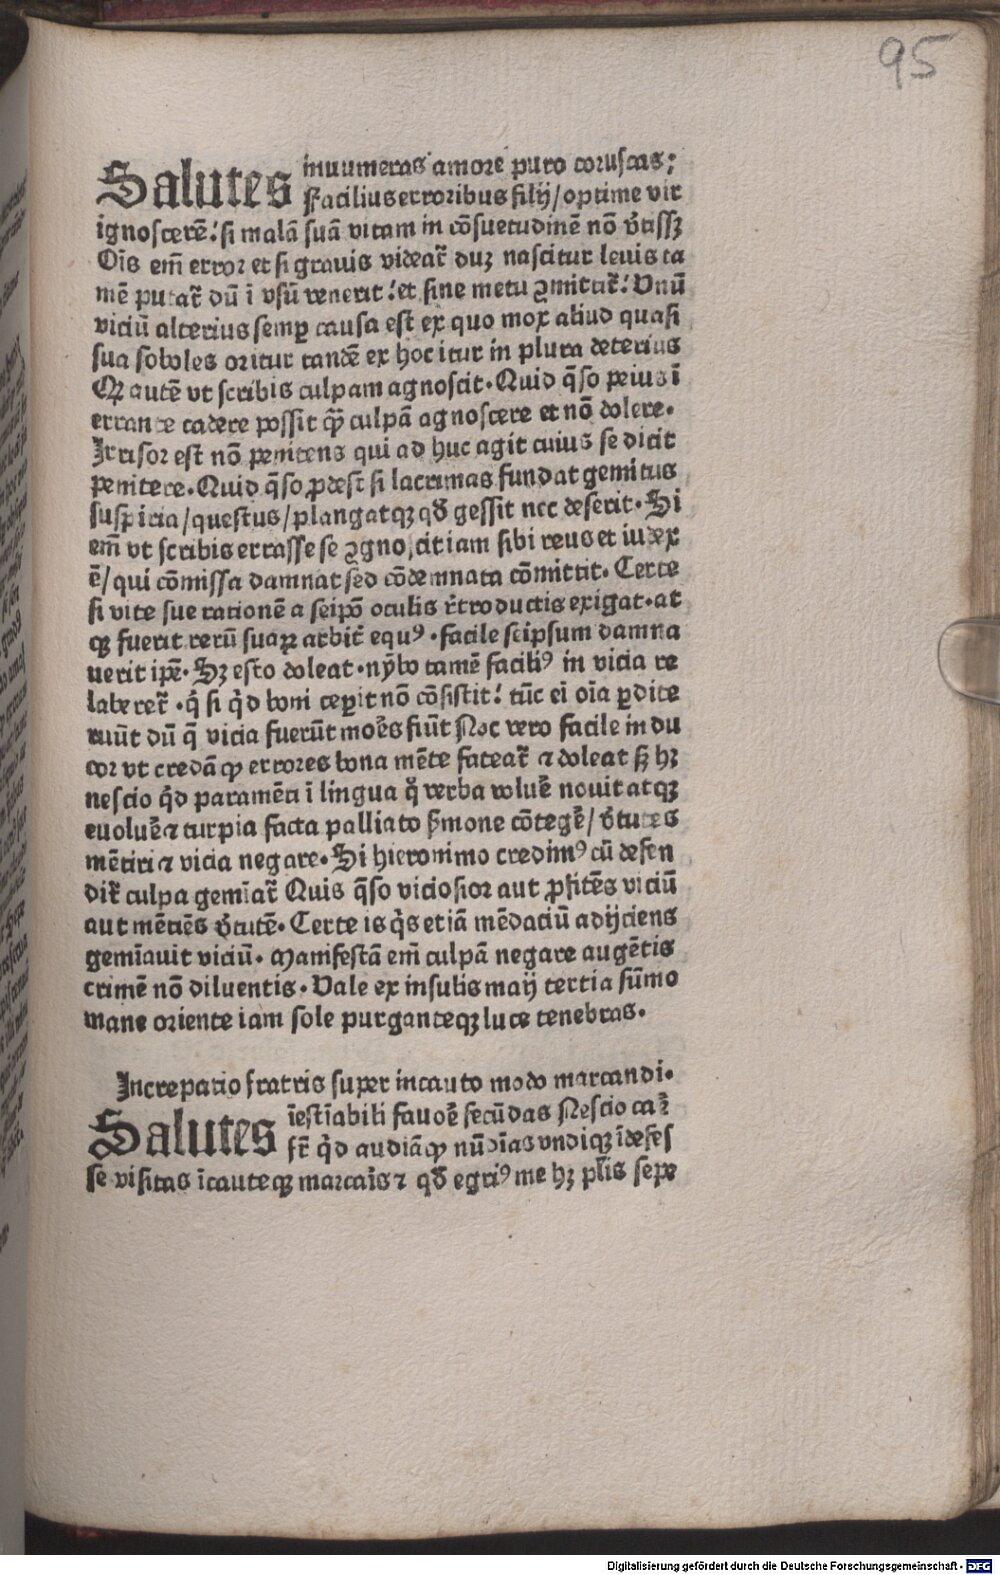 95
Salutes innumeras amore puro coruscas:
Facilius erroribus filij/optime vir
ignoscerē: si malā suā vitam in cōsuetudinē nō v̄tissꝫ
Oīs em̄ error et si grauis videat̄ duꝫ nascitur leuis ta
mē putat̄ dū ī vsū venerit: et sine metu ꝯmittit̄: Vnū
viciū alterius semꝑ causa est ex quo mox aliud quasi
sua soboles oritur tandē ex hoc itur in plura deterius
Qꝛ autē vt scribis culpam agnoscit. Quid q̄so peius ī
errante cadere possit qꝫ culpā agnoscere et nō dolere.
Irrisor est nō penitens qui ad huc agit cuius se dicit
penitere. Quid q̄so ꝓdest si lacrimas fundat gemitus
suspiria/questus/plangatqꝫ qd̄ gessit nec deserit. Si
em̄ vt scribis errasse se ꝯgnoscit iam sibi reus et iudex
ē/qui cōmissa damnat sed cōdemnata cōmittit. Certe
si vite sue rationē a seipō oculis r̄troductis exigat. at
qꝫ fuerit rerū suaꝝ arbit̄ equꝰ. facile seipsum damna
uerit ipē. Sꝫ esto doleat. nȳbo tamē faciliꝰ in vicia re
laberet̄. q̄ si q̇d boni cepit nō cōsistit: tūc ei oīa ꝑdite
ruūt dū q̄ vicia fuerūt mōes fiūt Nec vero facile in du
cor vt credā ꝙ errores bona mēte fateat̄ ⁊ doleat sꝫ hꝫ
nescio q̇d paramēti ī lingua q̇ verba voluē nouit atqꝫ
euoluē ⁊ turpia facta palliato s̄mone cōtegē/v̄tutes
mētiri ⁊ vicia negare. Si hieronimo credimꝰ cū defen
dit̄ culpa gemīat̄ Quis q̄so viciosior aut ꝓfitēs viciū
aut mētiēs v̄tutē. Certe is q̇s etiā mēdaciū adijciens
gemīauit viciū. Manifestā em̄ culpā negare augētis
crimē nō diluentis. Vale ex insulis maij tertia sūmo
mane oriente iam sole purganteqꝫ luce tenebras.
Increpatio fratris super incauto modo marcandi.
Salutes īestīabili fauoē secūdas Nescio caꝯ̄
fr̄ q̇d audiā ꝙ nūdīas vndiqꝫ īdefes
se visitas īcauteqꝫ marcaīs ⁊ qd̄ egriꝰ me hꝫ pl̄is sepe
Digitalisierung gefördert durch die Deutsche Forschungsgemeinschaft - DFG